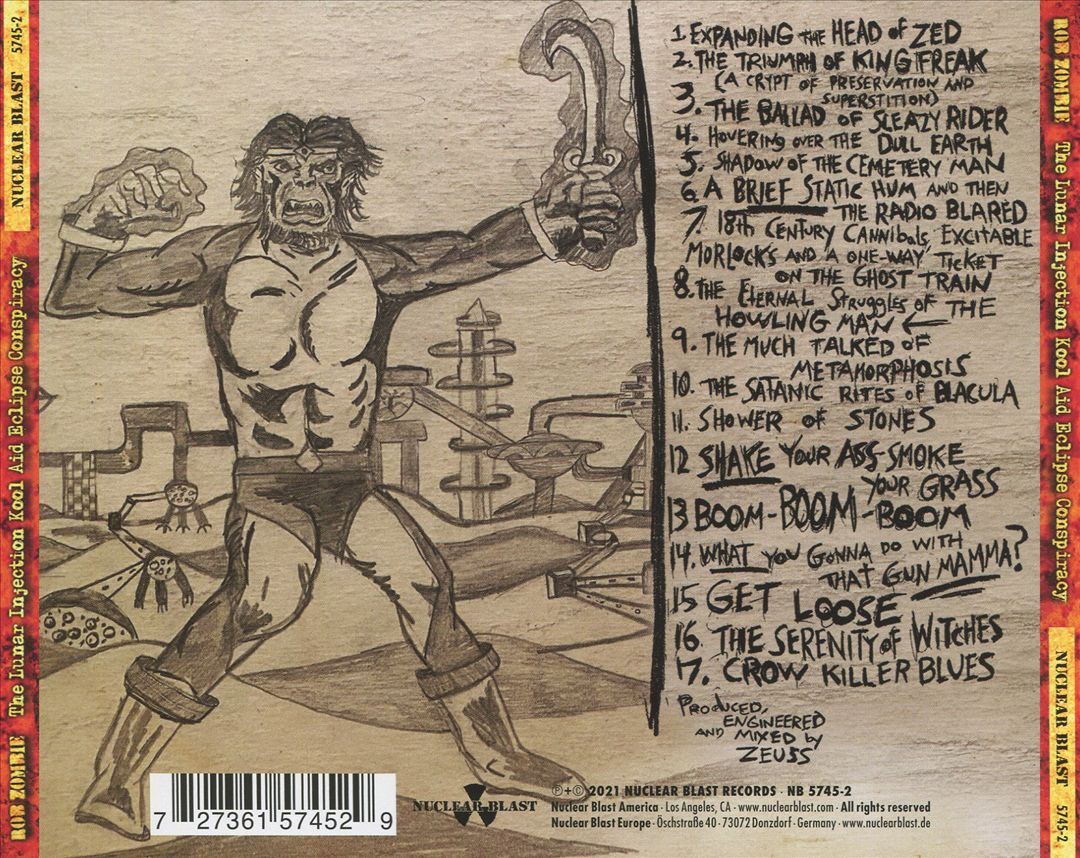 NUCLEAR BLAST 5745-2
ROB ZOMBIE The Lunar Injection Kool Aid Eclipse Conspiracy
1 EXPANDING THE HEAD OF ZED
2. THE TRIUMPH OF KING FREAK
(A CRYPT OF PRESERVATION AND
SUPERSTITION)
3. THE BALLAD OF SLEAZY RIDER
4. HOVERING OVER THE DULL EARTH
5. SHADOW OF THE CEMETERY MAN
6 A BRIEF STATIC HUM AND THEN
THE RADIO BLARED
7 18th CENTURY CANNIBALS, EXCITABLE
MORLOCKS AND A ONE-WAY TICKET
ON THE GHOST TRAIN
8. THE ETERNAL STRUGGLES OF THE
HOWLING MAN ←
9. THE MUCH TALKED OF
METAMORPHOSIS
10. THE SATANIC RITES OF BLACULA
11. SHOWER OF STONES
12 SHAKE YOUR ASS-SMOKE
YOUR GRASS
13 BOOM-BOOM-BOOM
14. WHAT YOU GONNA DO WITH
THAT GUN MAMMA?
15 GET LOOSE
16. THE SERENITY OF WITCHES
17. CROW KILLER BLUES
PRODUCED,
ENGINEERED
AND MIXED by
ZEUSS
7 27361 57452 9
NUCLEAR BLAST
℗+© 2021 NUCLEAR BLAST RECORDS · NB 5745-2
Nuclear Blast America · Los Angeles, CA · www.nuclearblast.com · All rights reserved
Nuclear Blast Europe · Öschstraße 40 · 73072 Donzdorf · Germany · www.nuclearblast.de
ROB ZOMBIE The Lunar Injection Kool Aid Eclipse Conspiracy
NUCLEAR BLAST 5745-2